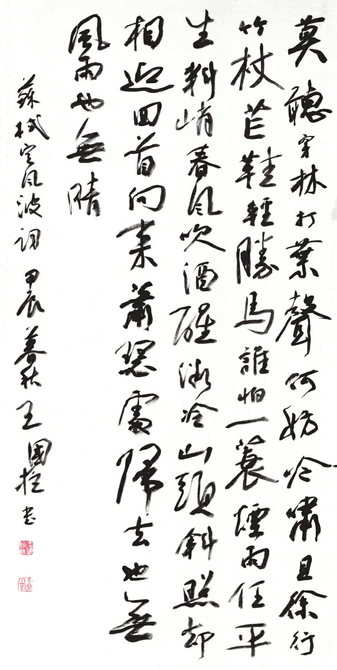 莫聽穿林打葉聲何妨吟嘯且徐行
竹杖芒鞋輕勝馬誰怕一蓑煙雨任平
生料峭春風吹酒醒微冷山頭斜照却
相迎回首向來蕭瑟處歸去也無
風雨也無晴
蘇軾定風波詞甲辰暮秋王國柱書